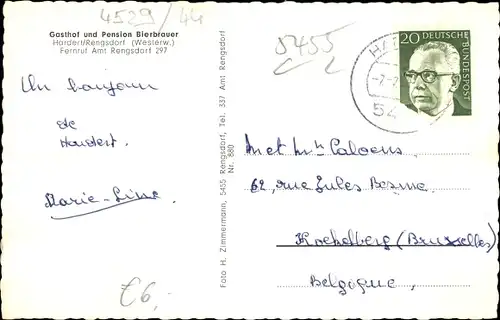 4529/44
Gasthof und Pension Bierbrauer
Hardert/Rengsdorf (Westerw.)
Fernruf Amt Rengsdorf 297
5455
20
DEUTSCHE BUNDESPOST
HA
54
Un bonjour
de
Hardert.
Marie-Line
€6,-
Foto H. Zimmermann, 5455 Rengsdorf, Tel. 337 Amt Rengsdorf
Nr. 880
M et Mme Caloens
62, rue Jules Besme
Koekelberg (Bruxelles)
Belgique